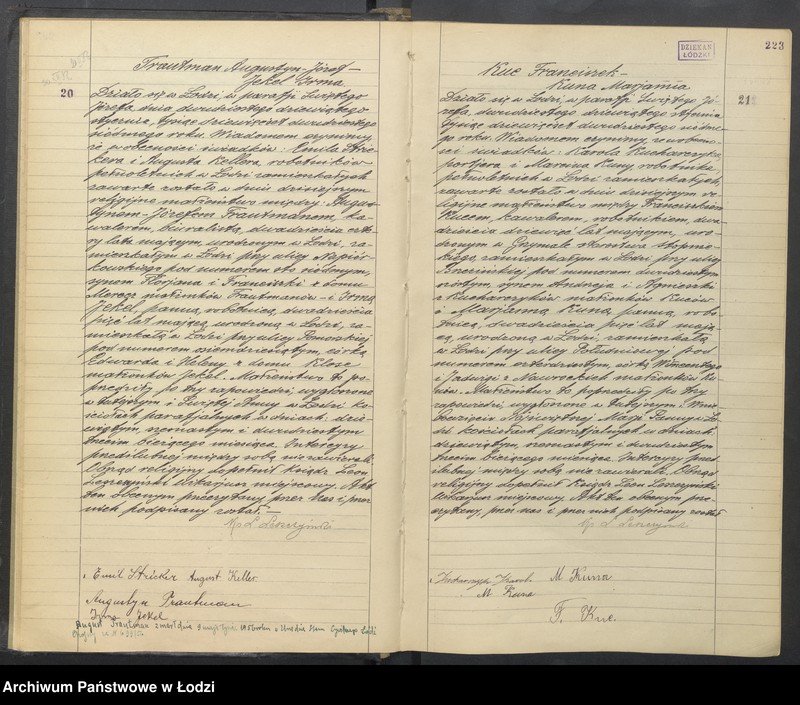 Trautman Augustyn-Józef-
Jekel Irma
20
Działo się w Łodzi, w parafji Świętego
Józefa dnia dwudziestego dziewiątego
stycznia, tysiąc dziewięćset dwudziestego
siódmego roku. Wiadomem czynimy,
iż w obecności świadków: Emila Stric-
kera i Augusta Kellera, robotników
pełnoletnich w Łodzi zamieszkałych,
zawarte zostało w dniu dzisiejszym
religijne małżeństwo między: Augus-
tynem-Józefem Trautmanem, ka-
walerem, biuralistą, dwadzieścia czte-
ry lata mającym, urodzonym w Łodzi, za-
mieszkałym w Łodzi przy ulicy Napiór-
kowskiego pod numerem sto siódmym,
synem Florjana i Franciszki z domu
małżonków Trautmanów - i Irmą
Jekel, panną, robotnicą, dwadzieścia
pięć lat mającą, urodzoną w Łodzi, za-
mieszkałą w Łodzi przy ulicy Pomorskiej
pod numerem siemdziesiątym, córką
Edwarda i Heleny z domu Klose
małżonków Jekel. Małżeństwo to po-
przedziły po trzy zapowiedzi, wygłoszone
w tutejszym i Świętej Anny w Łodzi ko-
ściołach parafjalnych w dniach: dzie-
wiątym, szesnastym i dwudziestym
trzecim bieżącego miesiąca. Intercyzy
przedślubnej między sobą nie zawierali.
Obrząd religijny dopełnił Ksiądz Leon
Leszczyński Wikarjusz miejscowy. Akt
ten obecnym przeczytany, przez Nas i przez
nich podpisany został.-
Ks L Leszczyński
Emil Stricker August Keller.
Augustyn Trautman
Irma Jekel
August Trautman zmarł dnia
DZIEKAN
ŁÓDZKI
223
Kuc Franciszek-
Kuna Marjanna
21
Działo się w Łodzi, w parafji Świętego Jó-
zefa, dwudziestego dziewiątego stycznia
tysiąc dziewięćset dwudziestego siódme-
go roku. Wiadomem czynimy, iż w obecno-
ści świadków: Karola Kucharczyka,
portjera i Marcina Kuny, robotnika,
pełnoletnich w Łodzi zamieszkałych,
zawarte zostało w dniu dzisiejszym re-
ligijne małżeństwo między Franciszkiem
Kucem, kawalerem, robotnikiem, dwa-
dzieścia dziewięć lat mającym, uro-
dzonym w Grzymale
zamieszkałym w Łodzi przy ulicy
pod numerem dwudziestym
szóstym, synem Andrzeja i Agnieszki
z Kucharczyków małżonków Kuców
i Marjanną Kuną, panną, robo-
tnicą, dwadzieścia pięć lat mają-
cą, urodzoną w Łodzi, zamieszkałą
w Łodzi przy ulicy Południowej pod
numerem czterdziestym, córką Wincentego
i Jadwigi z Nawrockich małżonków Ku-
nów. Małżeństwo to poprzedziły po trzy
zapowiedzi, wygłoszone w tutejszym i Wnie-
bowzięcia Najświętszej Marji Panny w Ło-
dzi kościołach parafjalnych w dniach:
dziewiątym, szesnastym i dwudziestym
trzecim bieżącego miesiąca. Intercyzy przed-
ślubnej między sobą nie zawierali. Obrząd
religijny dopełnił Ksiądz Leon Leszczyński
Wikarjusz miejscowy. Akt ten obecnym prze-
czytany, przez nas i przez nich podpisany został
Ks L Leszczyński
Kucharczyk Karol M Kuna
M Kuna
F. Kuc.
Archiwum Państwowe w Łodzi